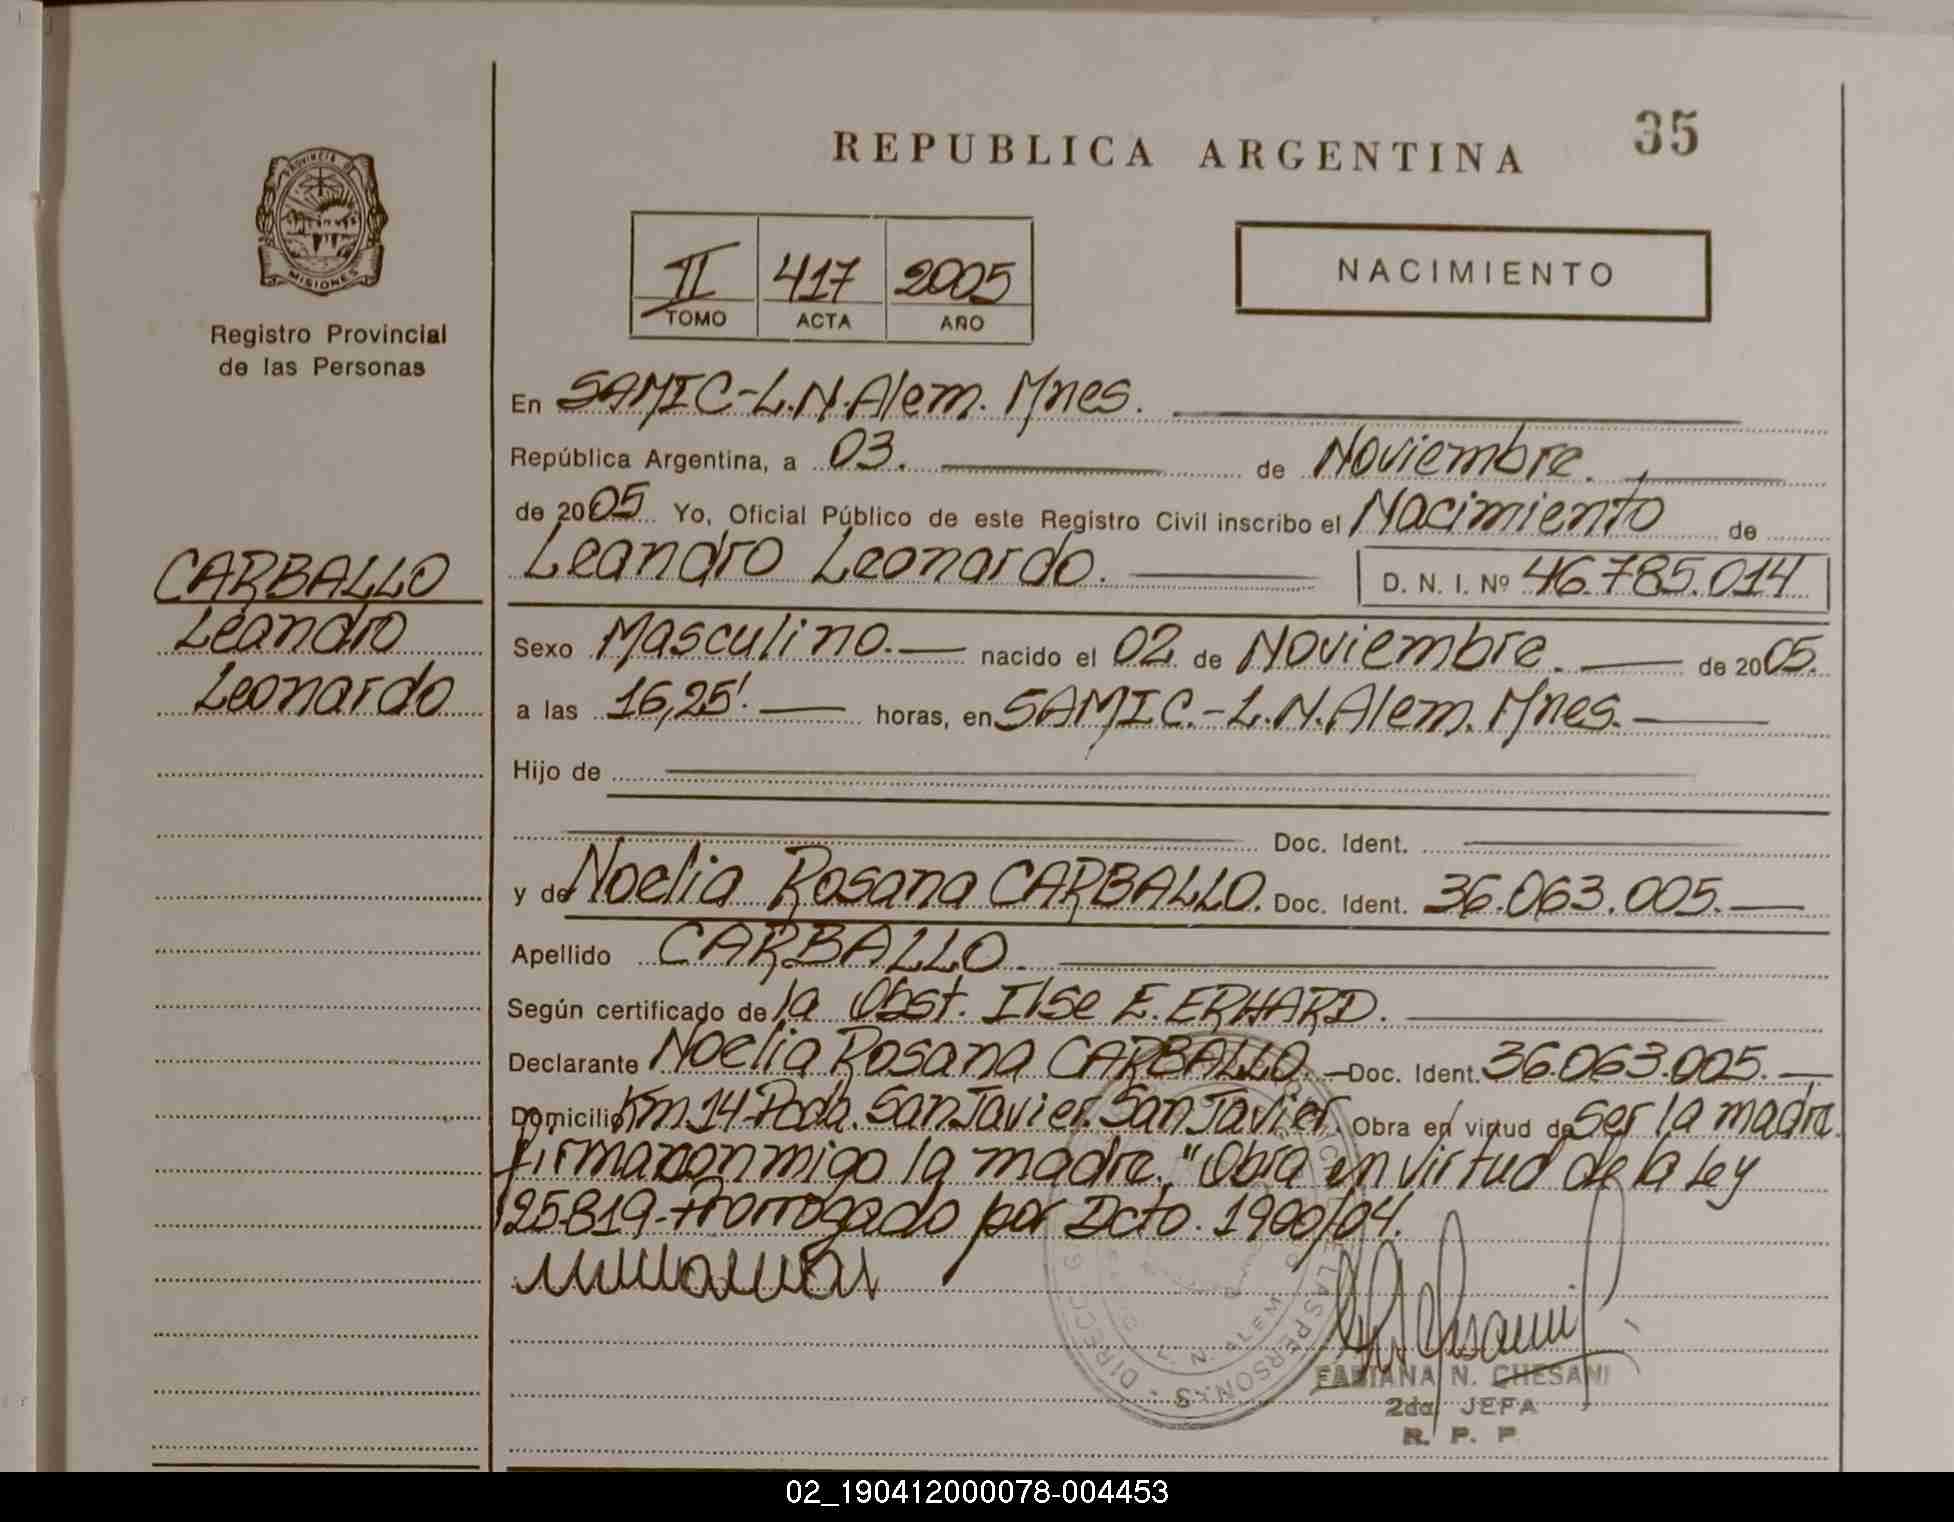 REPUBLICA ARGENTINA
35
PROVINCIA DE
MISIONES
Registro Provincial
de las Personas
II 417 2005
TOMO ACTA AÑO
NACIMIENTO
En SAMIC-L.N.Alem. Mnes.
República Argentina, a 03. de Noviembre.
de 2005 Yo, Oficial Público de este Registro Civil inscribo el Nacimiento de
Leandro Leonardo. D. N. I. Nº 46.785.014
CARBALLO
Leandro
Leonardo
Sexo Masculino. nacido el 02 de Noviembre. de 2005.
a las 16,25'. horas, en SAMIC.-L.N.Alem. Mnes.
Hijo de
Doc. Ident.
y de Noelia Rosana CARBALLO. Doc. Ident. 36.063.005.
Apellido CARBALLO.
Según certificado de la Obst. Ilse E. ERHARD.
Declarante Noelia Rosana CARBALLO. Doc. Ident. 36.063.005.
Domicilio Km.14-Pcda. San Javier. San Javier. Obra en virtud de ser la madre.
firma conmigo la madre. "Obra en virtud de la Ley
25.819-Prorrogado por Dcto. 1900/04.
LAS PERSONAS
L. N. ALEM
FABIANA N. CHESANI
2da. JEFA
R. P. P.
02_190412000078-004453